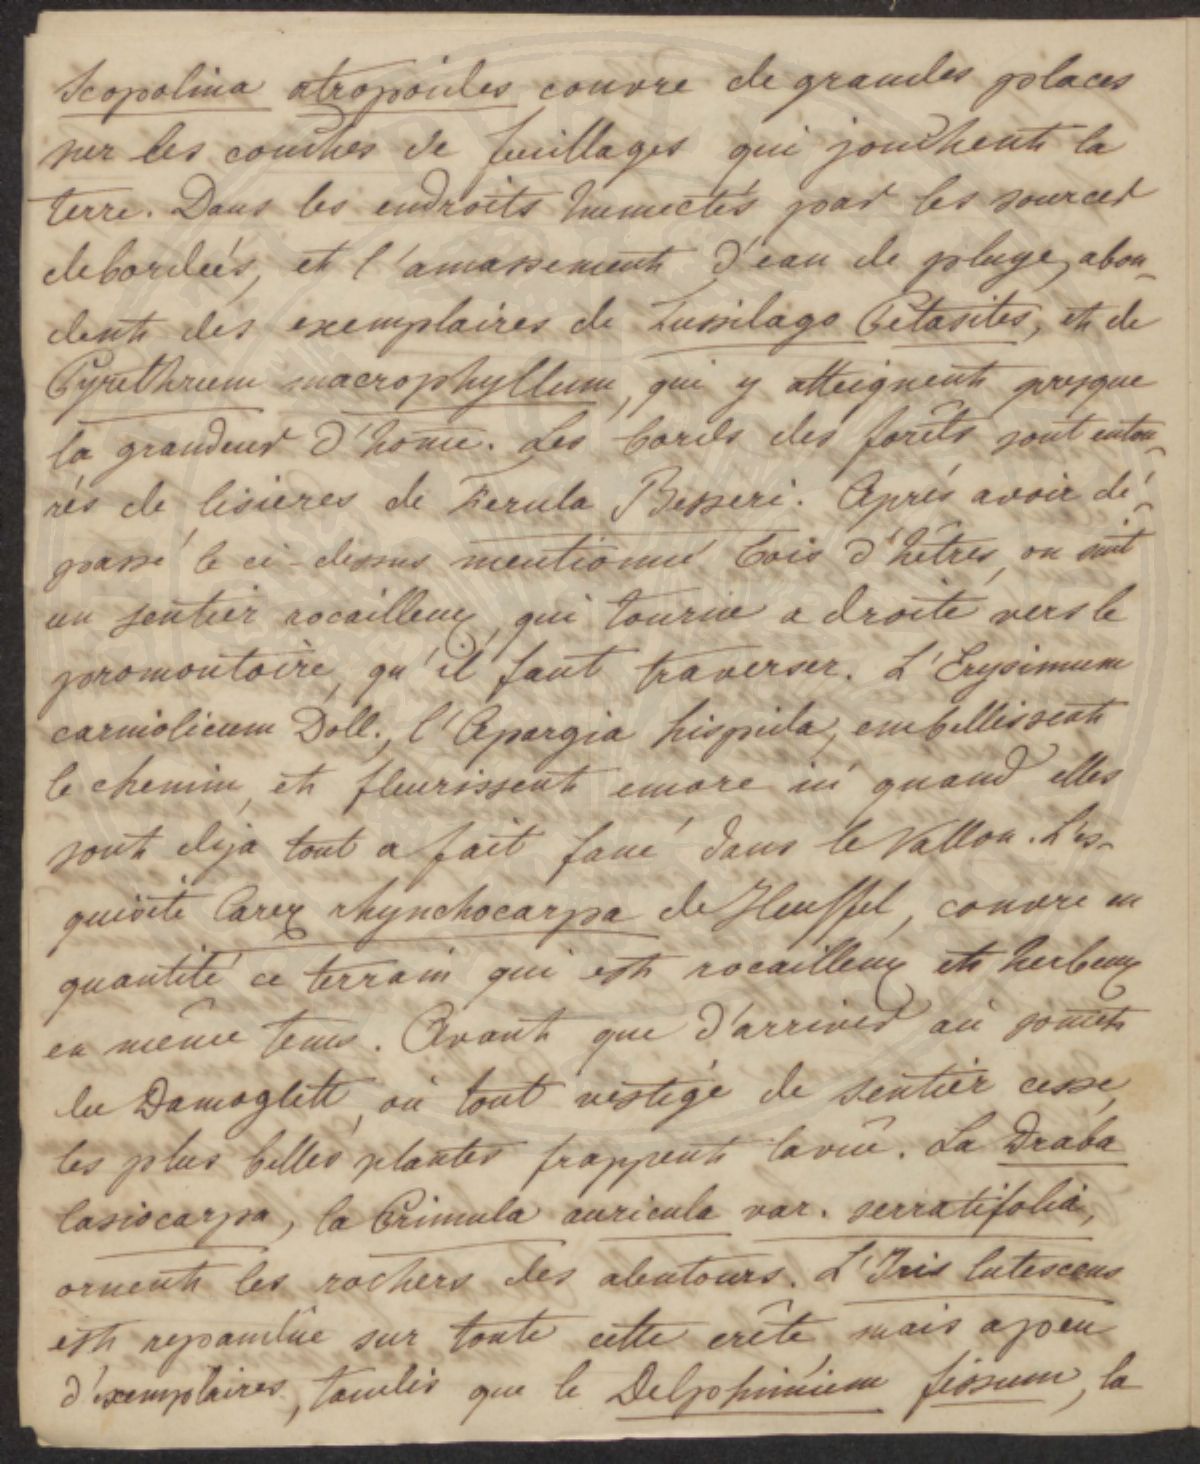 Scopolina atropoides couvre de grandes places
sur les couches de feuillages qui jonchent la
terre. Dans les endroits humectés par les sources
debordeés, et l'amassement d'eau de pluye, abon-
dent des exemplaires de Tussilago Petasites, et de
Pyrethrum macrophyllum, qui y atteignent presque
la grandeur d'home. Les bords des forêts sont entou-
rés de lisieres de Ferula Besseri. Aprés avoir dé-
passé le ci-dessus mentionné bois d'hêtres, on suit
un sentier rocailleux, qui tourne a droite vers le
promontoire, qu'il faut traverser. L'Erysimum
carniolicum Doll., l'Apargia hispida, embellissent
le chemin, et fleurissent encore ici quand elles
sont deja tout a fait fané dans le Vallon. L'es-
quisite Carex rhynchocarpa de Heuffel, couvre en
quantité ce terrain qui est rocailleux et herbeux
en même tems. Avant que d'arriver au somet
du Damoglett, où tout vestige de sentier cesse,
les plus belles plantes frappent la vue. La Draba
lasiocarpa, la Primula auricula var. serratifolia,
ornent les rochers des alentours. L'Iris lutescens
est repandue sur toute cette crête, mais a peu
d'exemplaires, tandis que le Delphinium fissum, la